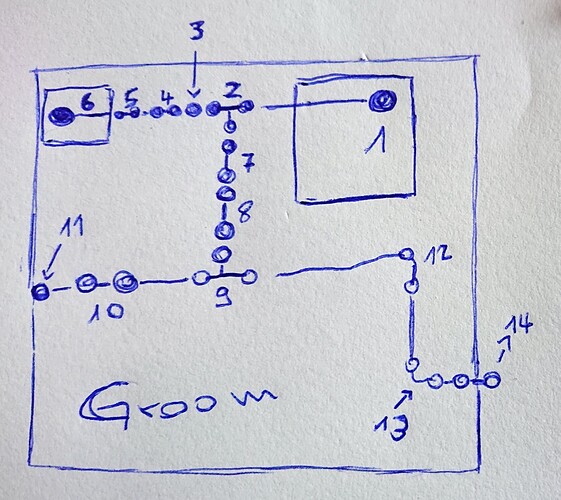 3
6 5 4 2
1
7
8
11
12
9
10
14
13
Groom